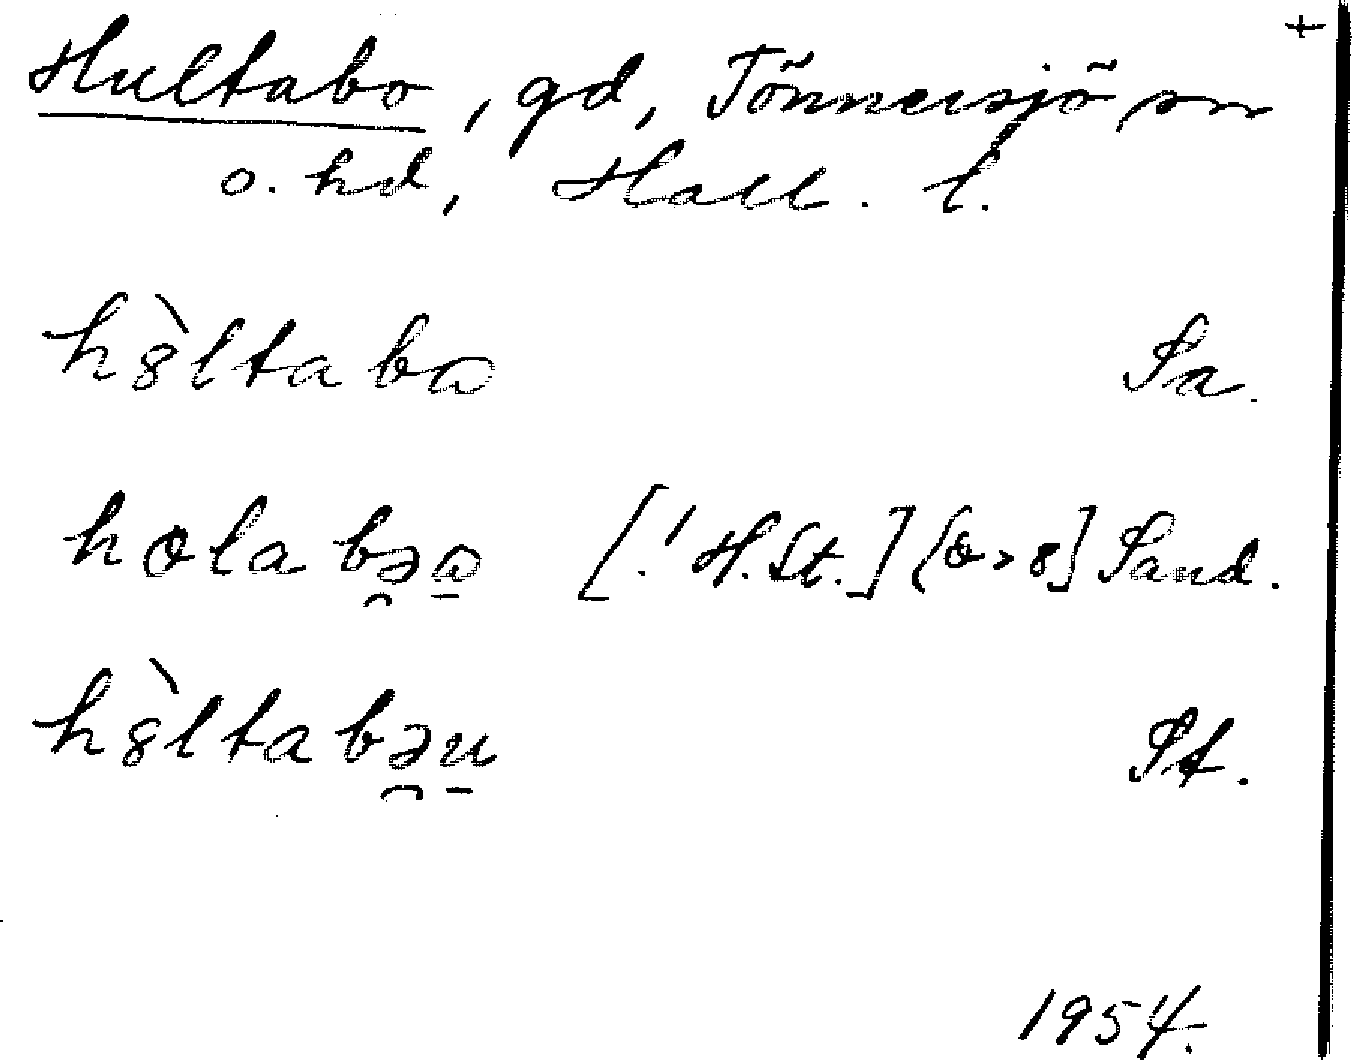 +
Hultabo, gd, Tönnersjö sn
o. hd, Hall. l.
h8̀ltabɷ Sa.
holabəɷ [! H.St.] [o>8] Sand.
h8̀ltabəu St.
1954.